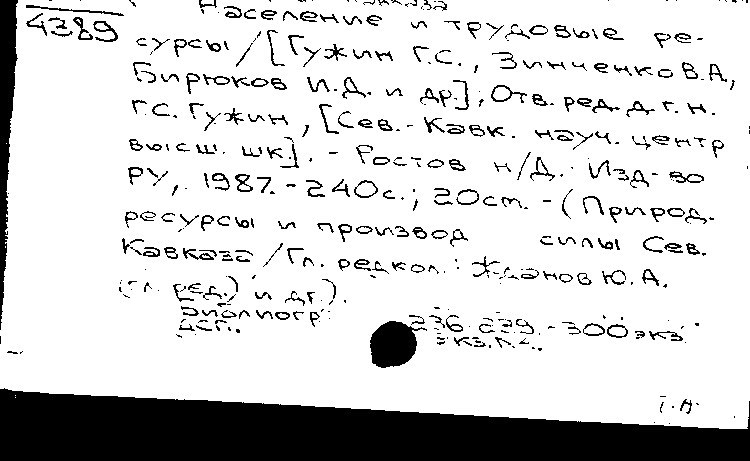 Кавказа
4389 Население и трудовые ре-
сурсы / [Гужин Г.С., Зинченко В.А,
Бирюков И.Д. и др.]; Отв. ред. д.г.н.
Г.С. Гужин, [Сев.-Кавк. науч. центр
высш. шк.]. - Ростов н/Д.: Изд-во
РУ, 1987. - 240с.; 20см. - (Природ.
ресурсы и производ силы Сев.
Кавказа / Гл. редкол.: Жданов Ю.А.
(гл. ред.) и др.).
Библиогр: 236-239. - 300 экз
ДСП. экз.